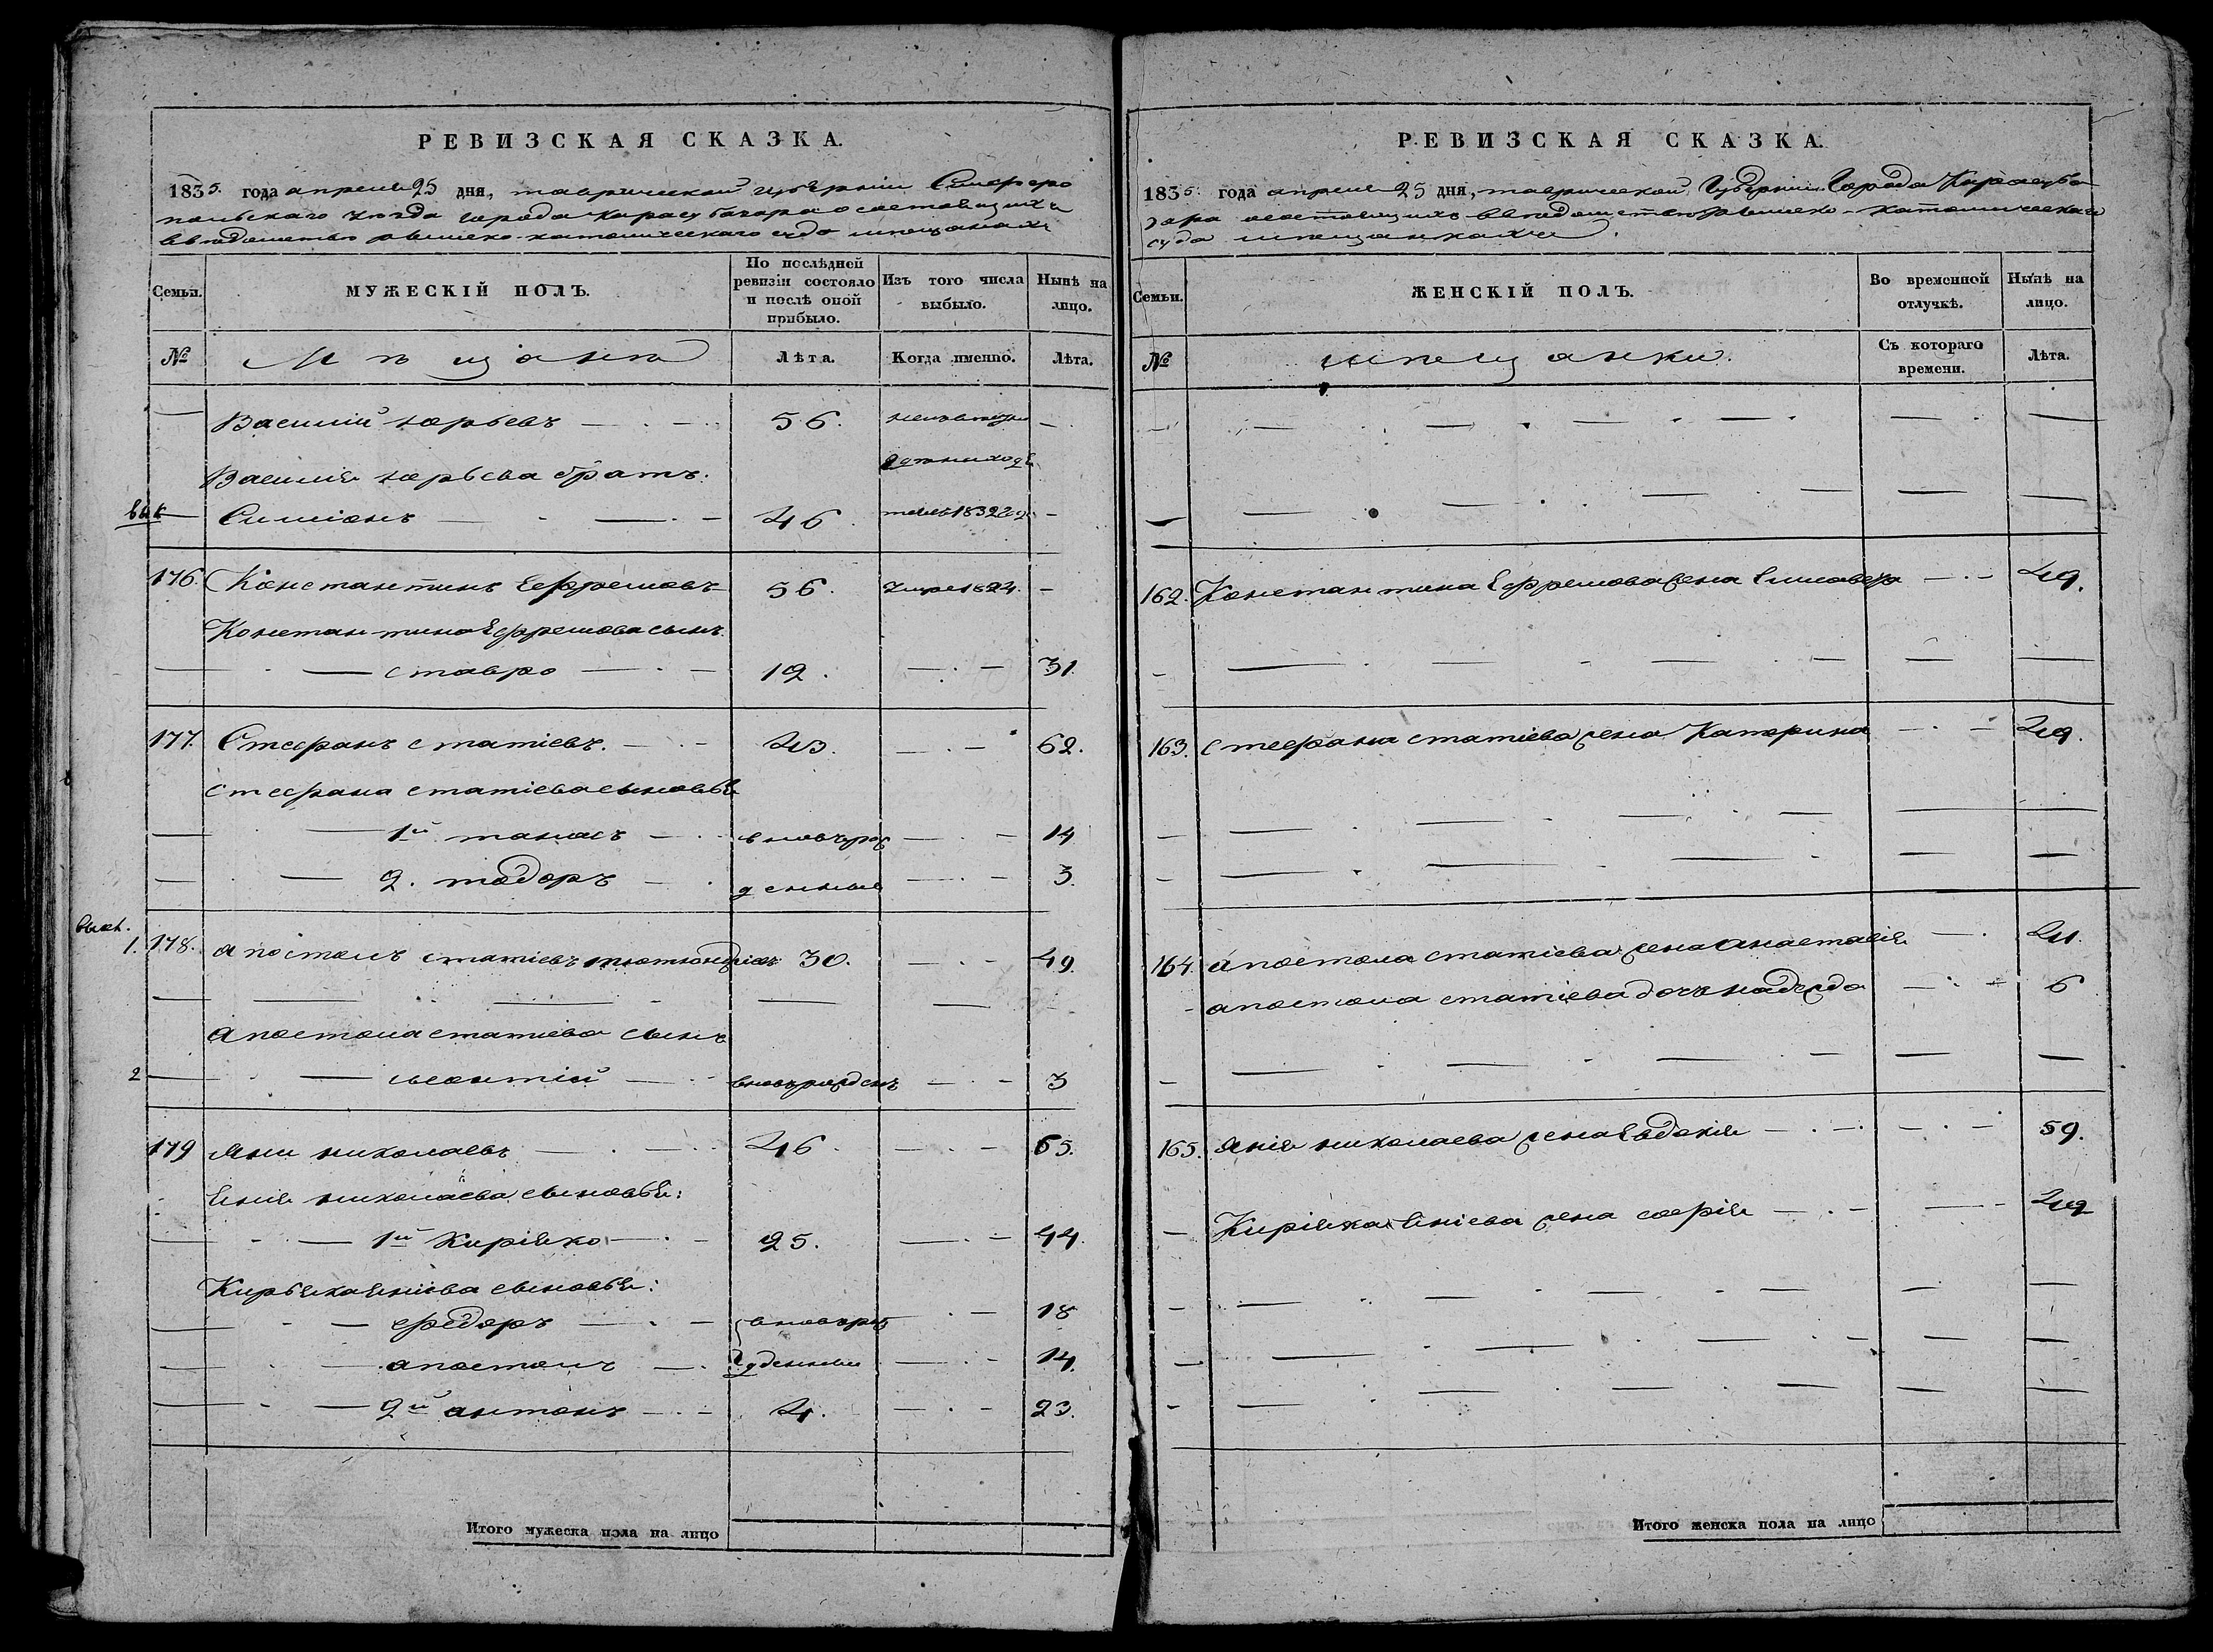 РЕВИЗСКАЯ СКАЗКА.
1835. года апреля 25 дня, таврической губернии Симферо
польскаго уезда города Карасубазара о состоящихъ
в ведомстве римско-католическаго суда мещанахъ
Семьи.
МУЖЕСКІЙ ПОЛЪ.
По послѣдней ревизіи состояло и послѣ оной прибыло.
Изъ того числа выбыло.
Нынѣ на лицо.
№
Мѣщане
Лѣта.
Когда именно.
Лѣта.
Василий юрьевъ 56.
Василия юрьева братъ:
Симіонъ 46. 1832
176. Константинъ Ефремовъ 56. умре 1824.
Константина Ефремова сынъ
ставро 12. 31
177. Стефанъ статіевъ. 43. 62.
стефана статіева сыновья
1й танасъ вновь рож 14
2. тодоръ денные 3.
выкл.
1. 178. апостолъ статіевъ 30. 49.
апостола статиева сынъ
2 леонтій вновь рожденъ 3
179 яни николаевъ 46. 65.
Яния николаева сыновья:
1й Киріяко 25. 44.
Кирьяка яніева сыновья:
федоръ вновь рож 18
апостолъ денные 14.
2й антонъ 4. 23.
Итого мужеска пола на лицо
РЕВИЗСКАЯ СКАЗКА.
1835. года апреля 25 дня, таврической Губернии Города Карасуба
зара состоящихъ в ведомстве римско-католическаго
суда мещанкахъ.
Семьи.
ЖЕНСКІЙ ПОЛЪ.
Во временной отлучкѣ.
Нынѣ на лицо.
№
мещанки.
Съ котораго времени.
Лѣта.
162. Константина Ефремова жена Елисавета 49.
163. стефана статіева жена Катерина 49.
164. апостола статіева жена анастасія 41.
апостола статіева дочь надежда 6
165. яния николаева жена Евдокія 59.
Киріяка яніева жена софія 49
Итого женска пола на лицо